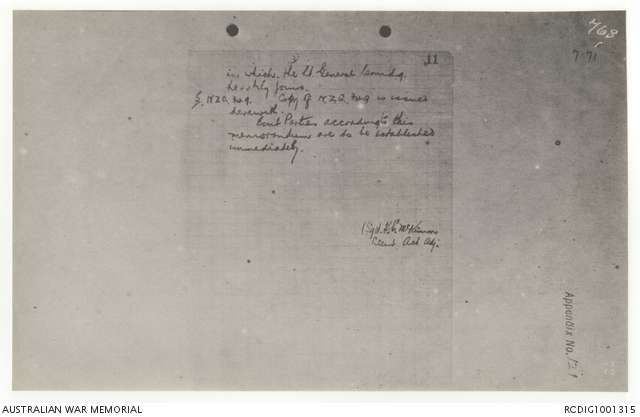 768
7-71
11
in which the Lt General
heartily joins.
5. N.Z.O. No 9. Copy of N.Z.O. No 9 is issued
herewith.
Bout Parties according to this
memorandum are to be established
immediately.
(Sgd
Lieut. Act Adj.
Appendix No. 121
AUSTRALIAN WAR MEMORIAL
RCDIG1001315